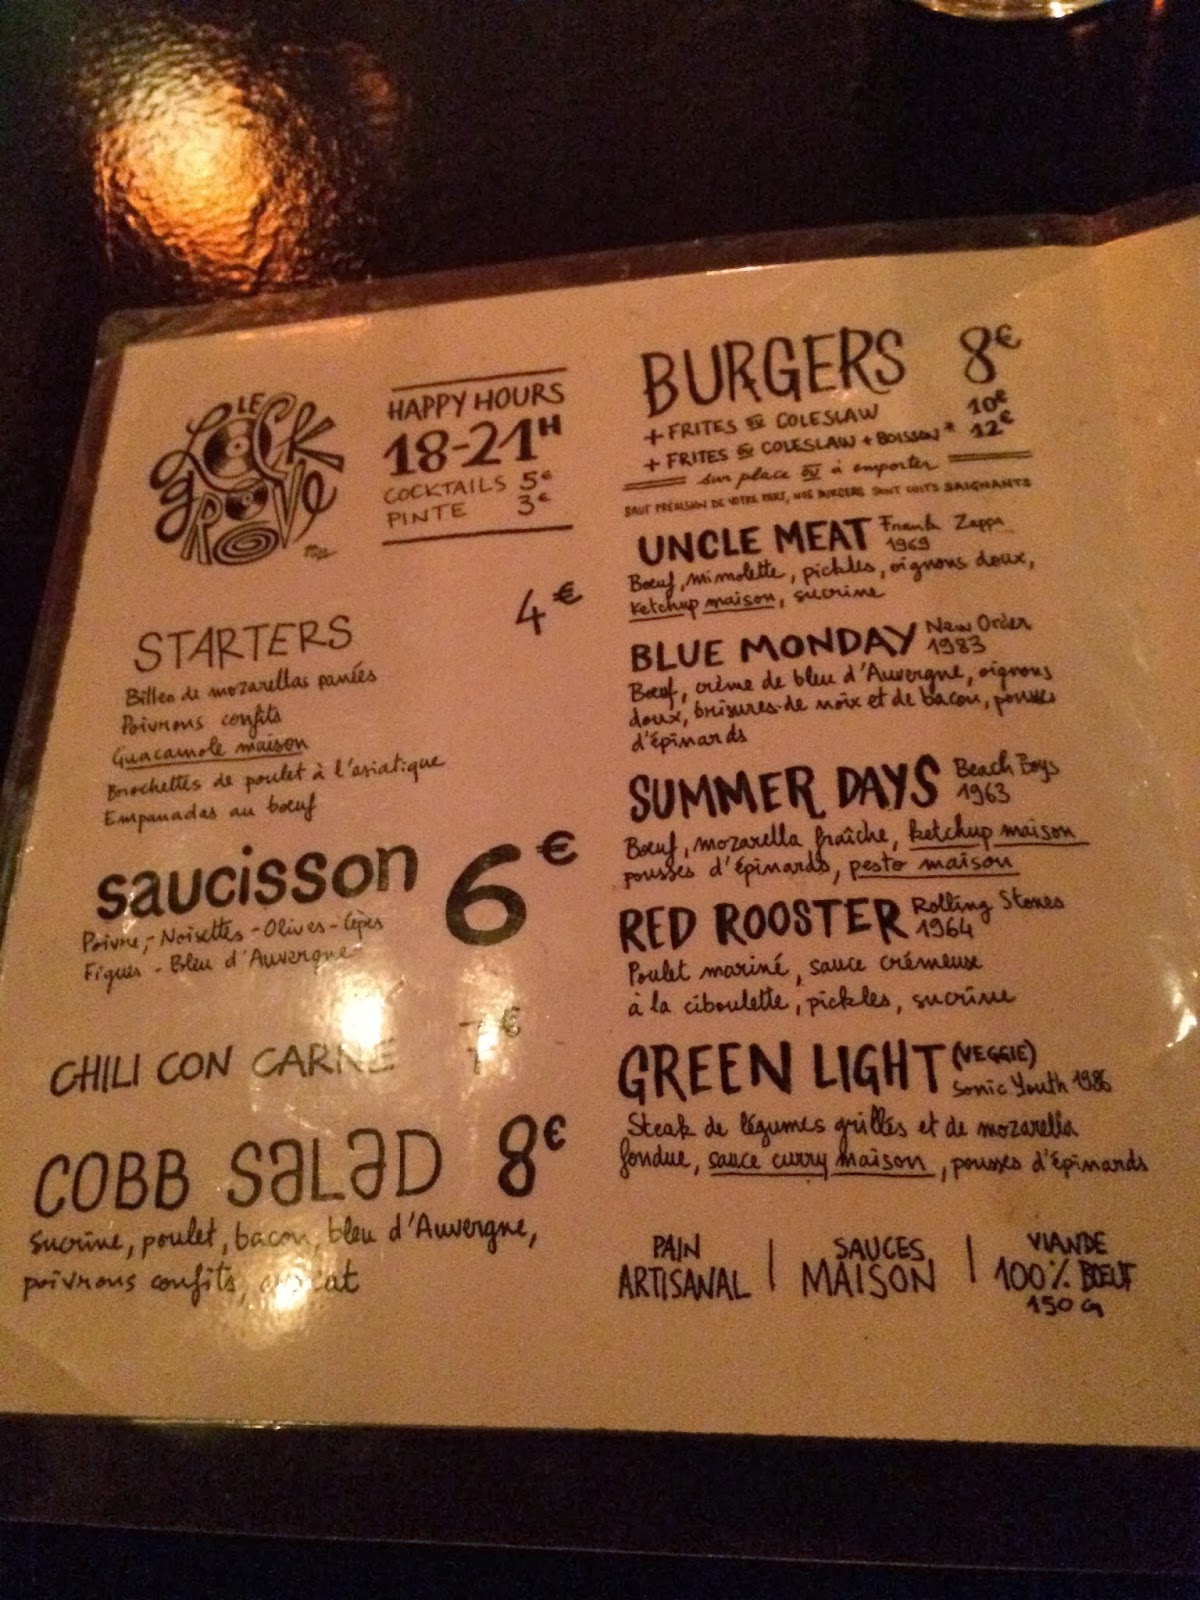 LE
LOCK
GROOVE
HAPPY HOURS
18-21H
COCKTAILS 5€
PINTE 3€
STARTERS 4€
Billes de mozarellas panées
Poivrons confits
Guacamole maison
Brochettes de poulet à l'asiatique
Empanadas au bœuf
saucisson 6€
Poivre, - Noisettes - Olives - Cèpes
Figues - Bleu d'Auvergne
CHILI CON CARNE 7€
COBB SALAD 8€
sucrine, poulet, bacon, bleu d'Auvergne,
poivrons confits, avocat
BURGERS 8€
+ FRITES OU COLESLAW 10€
+ FRITES OU COLESLAW + BOISSON* 12€
sur place OU à emporter
SAUF PRÉCISION DE VOTRE PART, NOS BURGERS SONT CUITS SAIGNANTS
UNCLE MEAT Frank Zappa
1969
Bœuf, mimolette, pickles, oignons doux,
ketchup maison, sucrine
BLUE MONDAY New Order
1983
Bœuf, crème de bleu d'Auvergne, oignons
doux, brisures de noix et de bacon, pousses
d'épinards
SUMMER DAYS Beach Boys
1963
Bœuf, mozarella fraîche, ketchup maison
pousses d'épinards, pesto maison
RED ROOSTER Rolling Stones
1964
Poulet mariné, sauce crémeuse
à la ciboulette, pickles, sucrine
GREEN LIGHT (VEGGIE)
Sonic Youth 1986
Steak de légumes grillés et de mozarella
fondue, sauce curry maison, pousses d'épinards
PAIN
ARTISANAL
SAUCES
MAISON
VIANDE
100% BŒUF
150 G